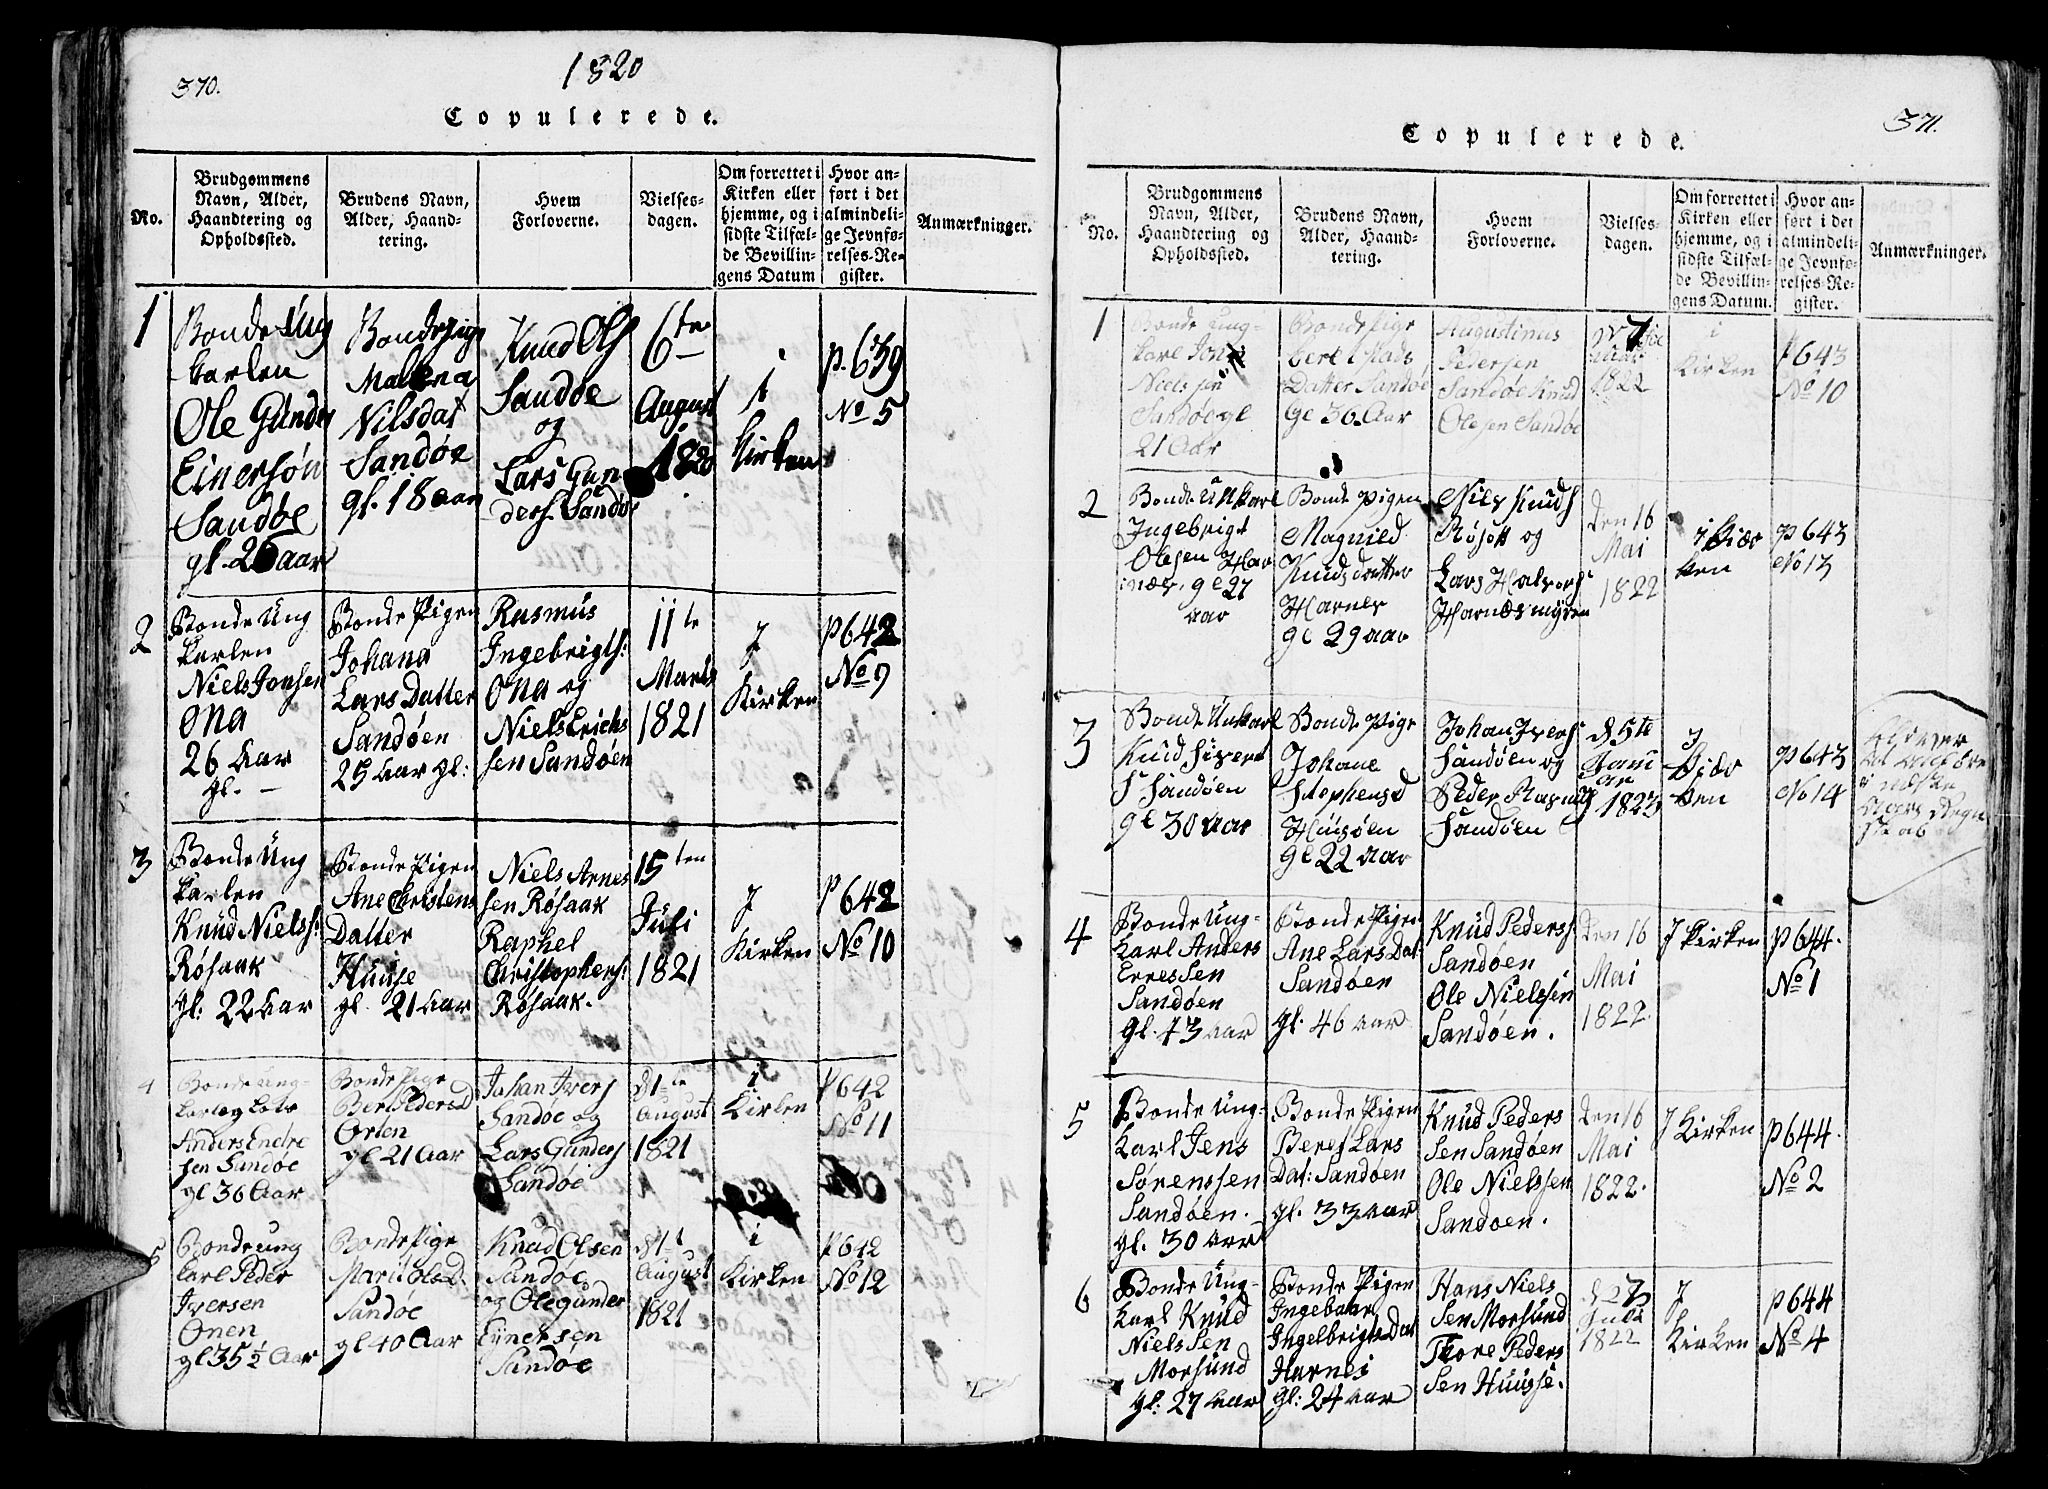 370.
1820
Copulerede.
No.
Brudgommens
Navn, Alder,
Haandtering og
Opholdssted.
Brudens Navn,
Alder, Haand-
tering.
Hvem
Forloverne.
Vielses-
dagen.
Om forrettet i
Kirken eller
hjemme, og i
sidste Tilfæl-
de Bevillin-
gens Datum
Hvor an-
ført i det
almindeli-
ge Jevnfø-
relses-Re-
gister.
Anmærkninger.
1
Bonde Ung
karlen
Ole Gunder
Einersøn
Sandøe
gl. 26 aar
Bondepige
Malena
Nilsdat
Sandøe
gl. 18 aar
Knud Ols
Sandøe
og
Lars Gun
ders. Sandøe
6te
August
1820
i
Kirken
p. 639
No 5
2
Bonde Ung
karlen
Niels Jonsen
Ona
26 Aar
gl. —
Bonde Pigen
Johana
Lars Datter
Sandøen
25 Aar gl:
Rasmus
Ingebrigts:
Ona og
Niels Erichs
sen Sandøen
11te
Marts
1821
J
Kirken
p 642
No 9
3
Bonde Ung
karlen
Knud Nielss:
Røsaak
gl: 22 Aar
Bonde Pigen
Ane Christens
Datter
Huuse
gl. 21 Aar
Niels Arnes
sen Røsaak
Raphel
Christophers:
Røsaak.
15ten
Juli
1821
J
Kirken
p 642
No 10
4
Bonde Ung-
karl
Anders Endre
sen Sandøe
gl 36 Aar
Bonde Pige
Beret Pedersd
Orten
gl 21 Aar
Johan Ivers
Sandøe og
Lars Gunders
Sandøe
d 1te
August
1821
i
Kirken
p 642
No 11
5
Bonde ung
karl Peder
Iversen
Onen
gl 35 ½ Aar
Bonde Pige
Marit Ols D.
Sandøe
gl 40 Aar
Knud Olsen
Sandøe
og Ole Gunder
Eynersen
Sandøe
d 1t
August
1821
i
Kirken
p 642
No 12
371.
Copulerede.
No.
Brudgommens
Navn, Alder,
Haandtering og
Opholdssted.
Brudens Navn,
Alder, Haand-
tering.
Hvem
Forloverne.
Vielses-
dagen.
Om forrettet i
Kirken eller
hjemme, og i
sidste Tilfæl-
de Bevillin-
gens Datum.
Hvor an-
ført i det
almindeli-
ge Jevnfø-
relses-Re-
gister.
Anmærkninger.
1
Bonde Ung-
karl Jon
Nielsen
Sandøe gl
21 Aar
Bonde Pige
Beret
Datter Sandøe
gl 36 Aar
Augustinus
Pedersen
Sandøe Knud
Olesen Sandøe
1822
i
Kirken
p 643
No 10
2
Bonde Unkarl
Ingebrigt
Olesen Har
næs. gl 27
aar
Bonde pigen
Magnild
Knudsdatter
Harnes
gl 29 aar
Niels Knuds
Røsok og
Lars Halvors
Harnæsmyren
Den 16
Mai
1822
i Kir
ken
p 643
No 13
3
Bonde Unkarl
Knud Sivert
s Sandøen
gl 30 aar
Bonde Pige
Johane
Stephensd
Husøen
gl 22 aar
Johan Ivers
Sandøen og
Peder Rasmus
Sandøen
d 5te
Janu
ar
1823
J
Kir
ken
p 643
No 14
4
Bonde Ung-
karl Anders
Erressen
Sandøen
gl. 43 aar
Bonde Pigen
Ane Lars Dat
Sandøen
gl. 46 aar
Knud Peders
Sandøen
Ole Nielssen
Sandøen.
Den 16
Mai
1822.
J Kirken
p 644.
No 1
5
Bonde Ung-
karl Jens
Sørenssen
Sandøen.
gl. 30 aar
Bonde Pigen
Beret Lars
Dat: Sandøen
gl. 33 aar
Knud Peders
sen Sandøen
Ole Nielssen
Sandøen.
Den 16
Mai
1822.
J Kirken
p 644.
No 2
6
Bonde Ung-
karl Knud
Nielssen
Morsund
gl: 27 aar
Bonde Pigen
Ingebaar
Ingelbrigts Dat
Harnes
gl: 24 aar
Hans Niels
sen Morsund
Thore Peders
sen Huuse.
d 27
Juli
1822
J
Kirken
p 644
No 4